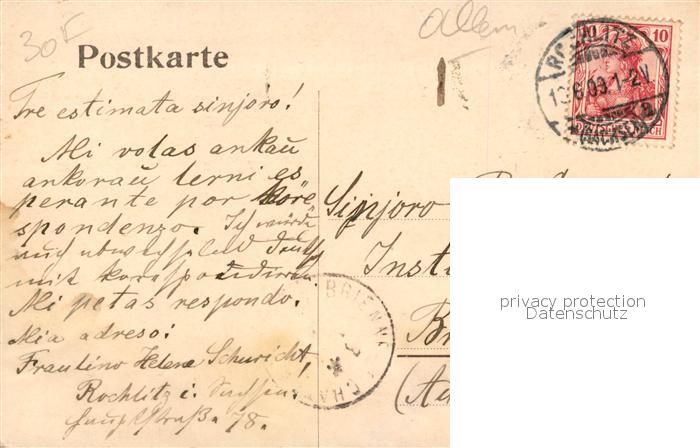 30F
allem
Postkarte
10
10
ROCHLITZ
09.1-2V.
(SACHSEN)
a
Tre estimata sinjoro!
Mi volas ankaŭ
ankoraŭ lerni es
perante por kore
spondenzo. Ich würde
auch abwechselnd deutsch
mit korrespondieren.
Mi petas respondo.
Mia adreso:
Fraulino Helene Schuricht,
Rochlitz i. Sachsen.
Hauptstraß. 78.
Sinjoro
Inst
Br
(Au
BRIENNE
privacy protection
Datenschutz